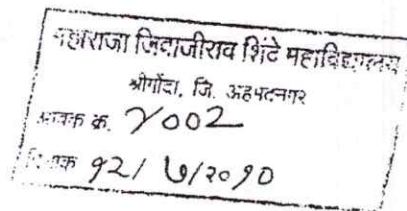 महाराजा जिवाजीराव शिंदे महाविद्यालय
श्रीगोंदा, जि. अहमदनगर
आवक क्र. ४००२
दिनांक १२/ ७/२०१०